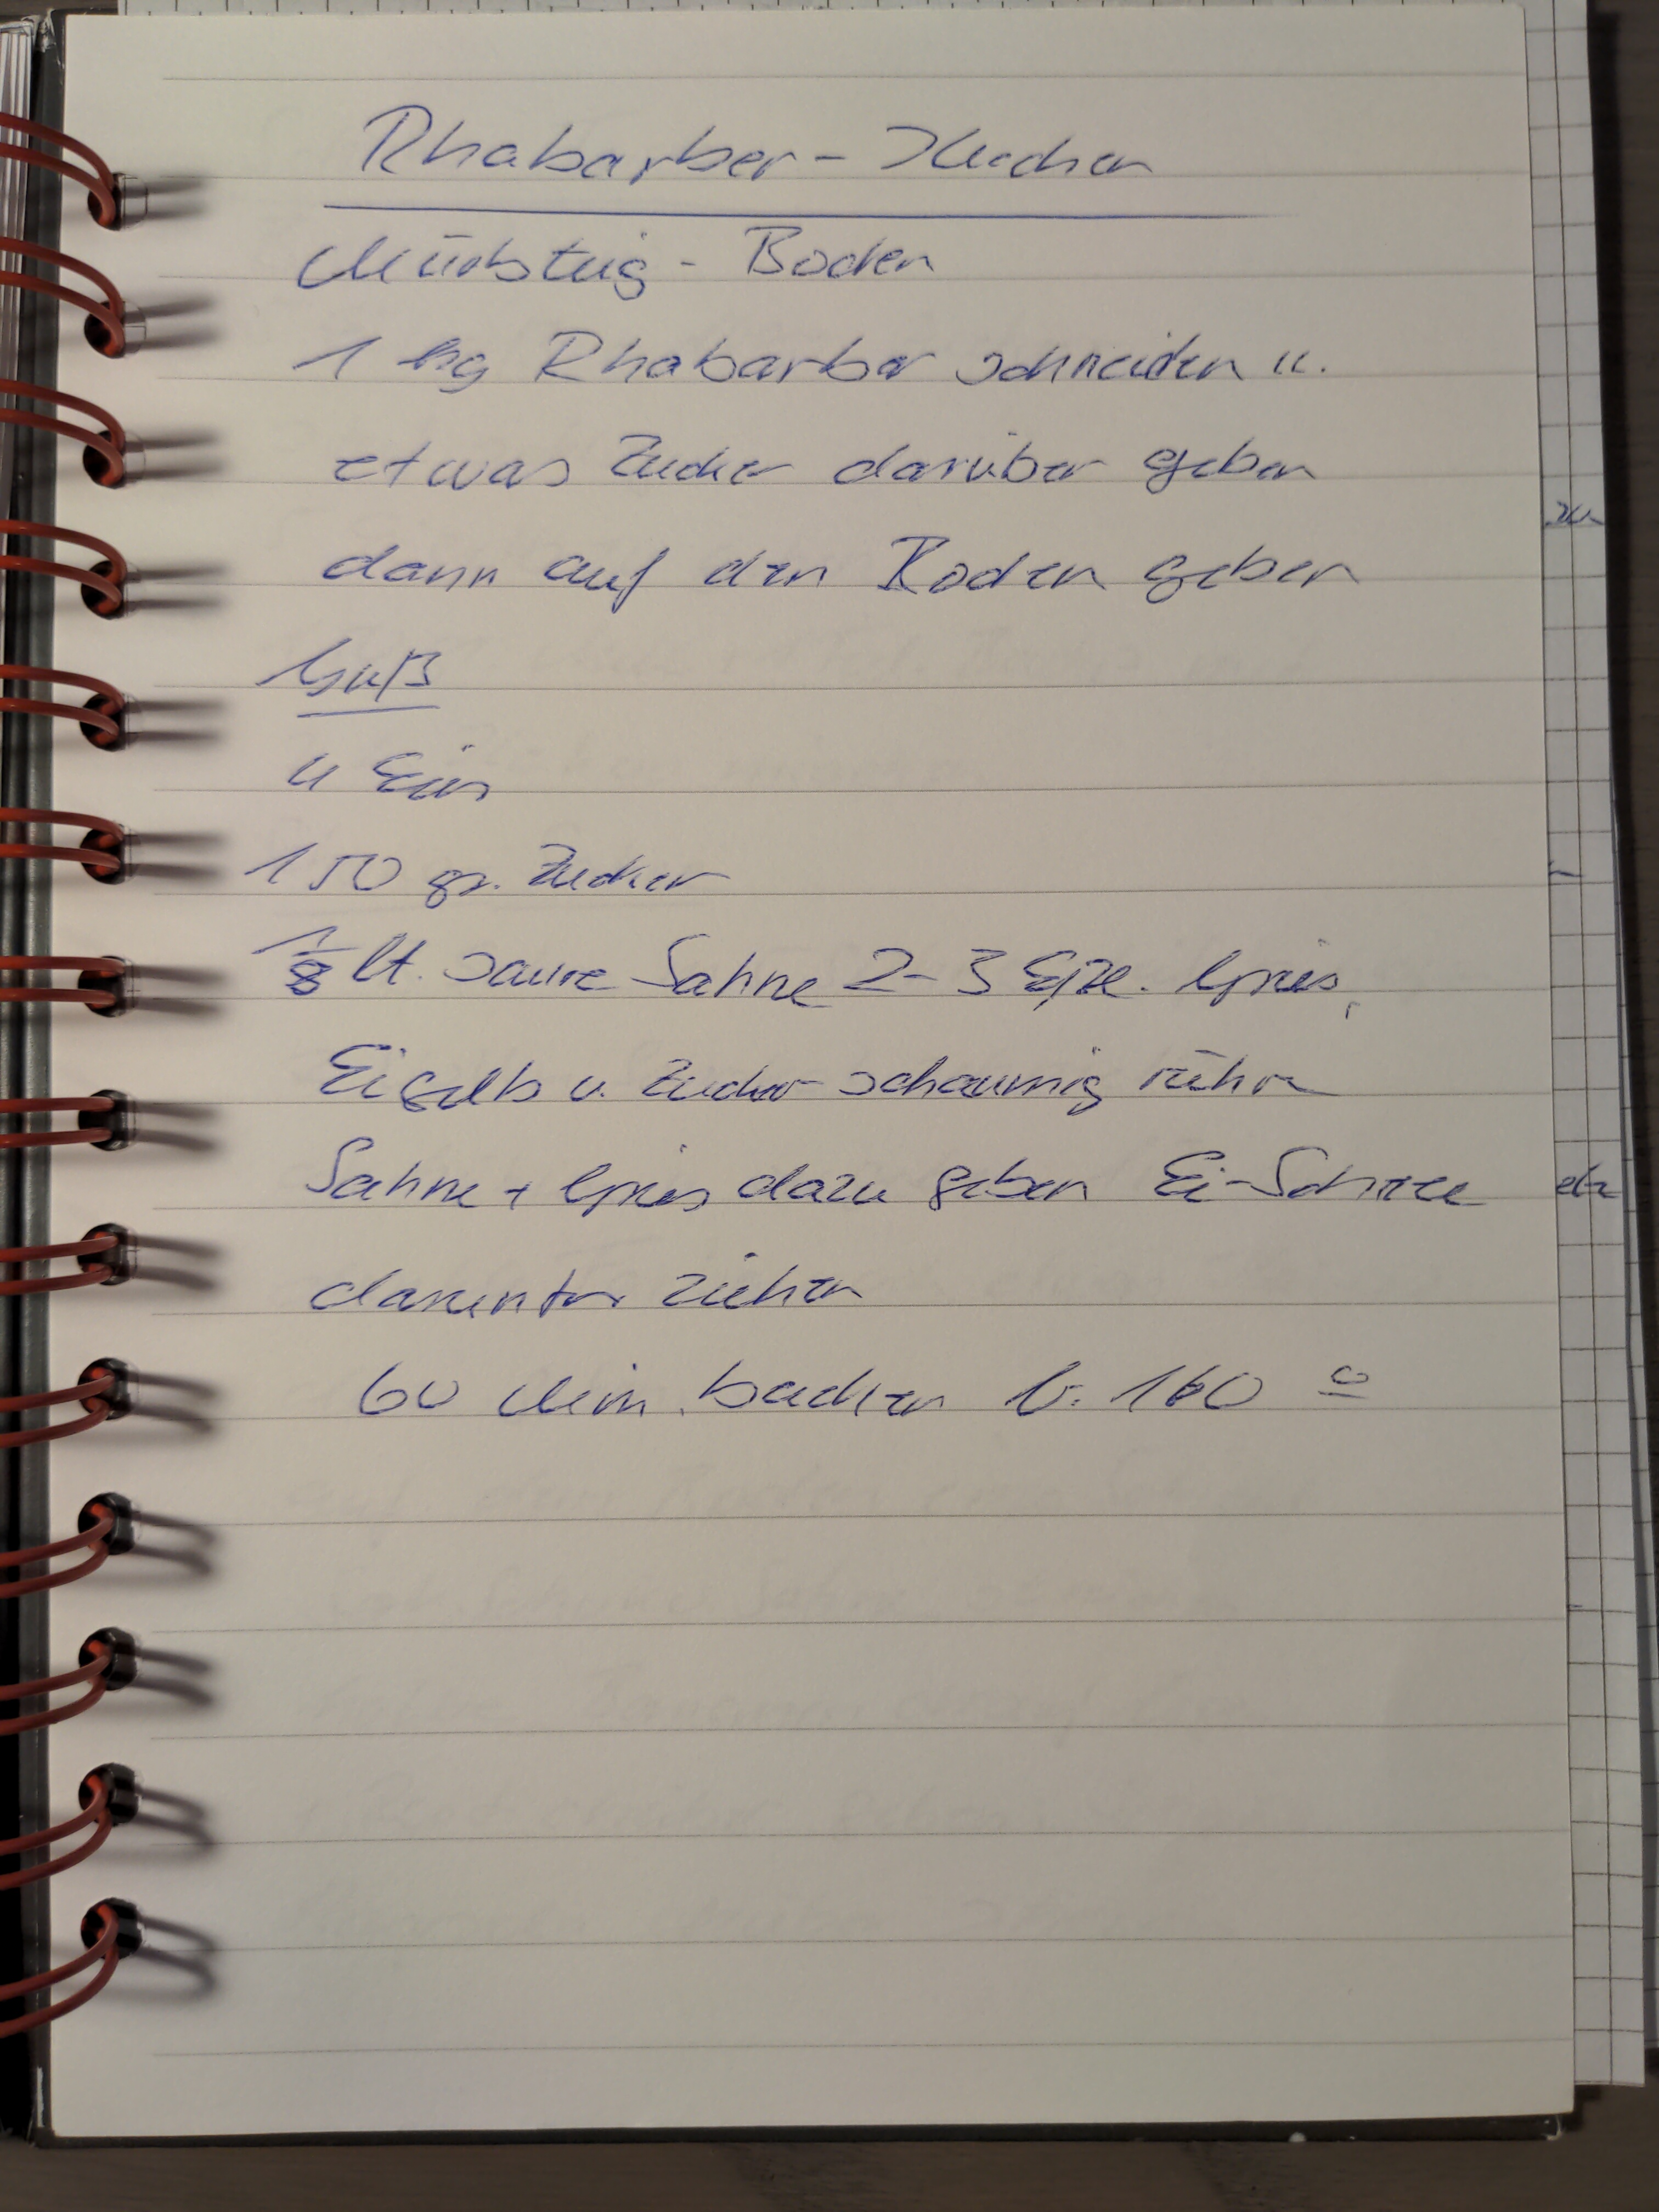 Rhabarber - Kuchen
Mürbsteig - Boden
1 kg Rhabarber schneiden u.
etwas Zucker darüber geben
dann auf den Boden geben
Guß
4 Eier
150 gr. Zucker
1/8 lt. saure Sahne 2-3 Eßl. Gries,
Eigelb u. Zucker schaumig rühren
Sahne + Gries dazu geben Ei-Schnee
darunter ziehen
60 Min. backen b. 160 °